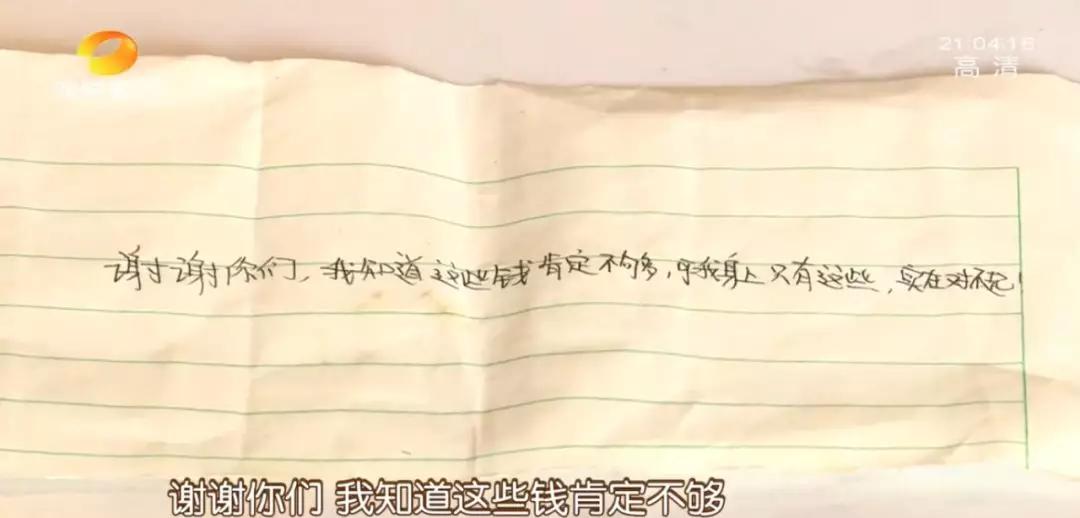 21:04:16
高清
谢谢你们，我知道这些钱肯定不够多，我身上只有这些，实在对不起！
谢谢你们 我知道这些钱肯定不够